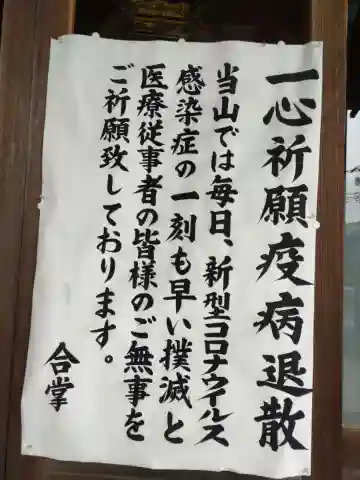 一心祈願疫病退散
当山では毎日、新型コロナウイルス
感染症の一刻も早い撲滅と
医療従事者の皆様のご無事を
ご祈願致しております。
合掌